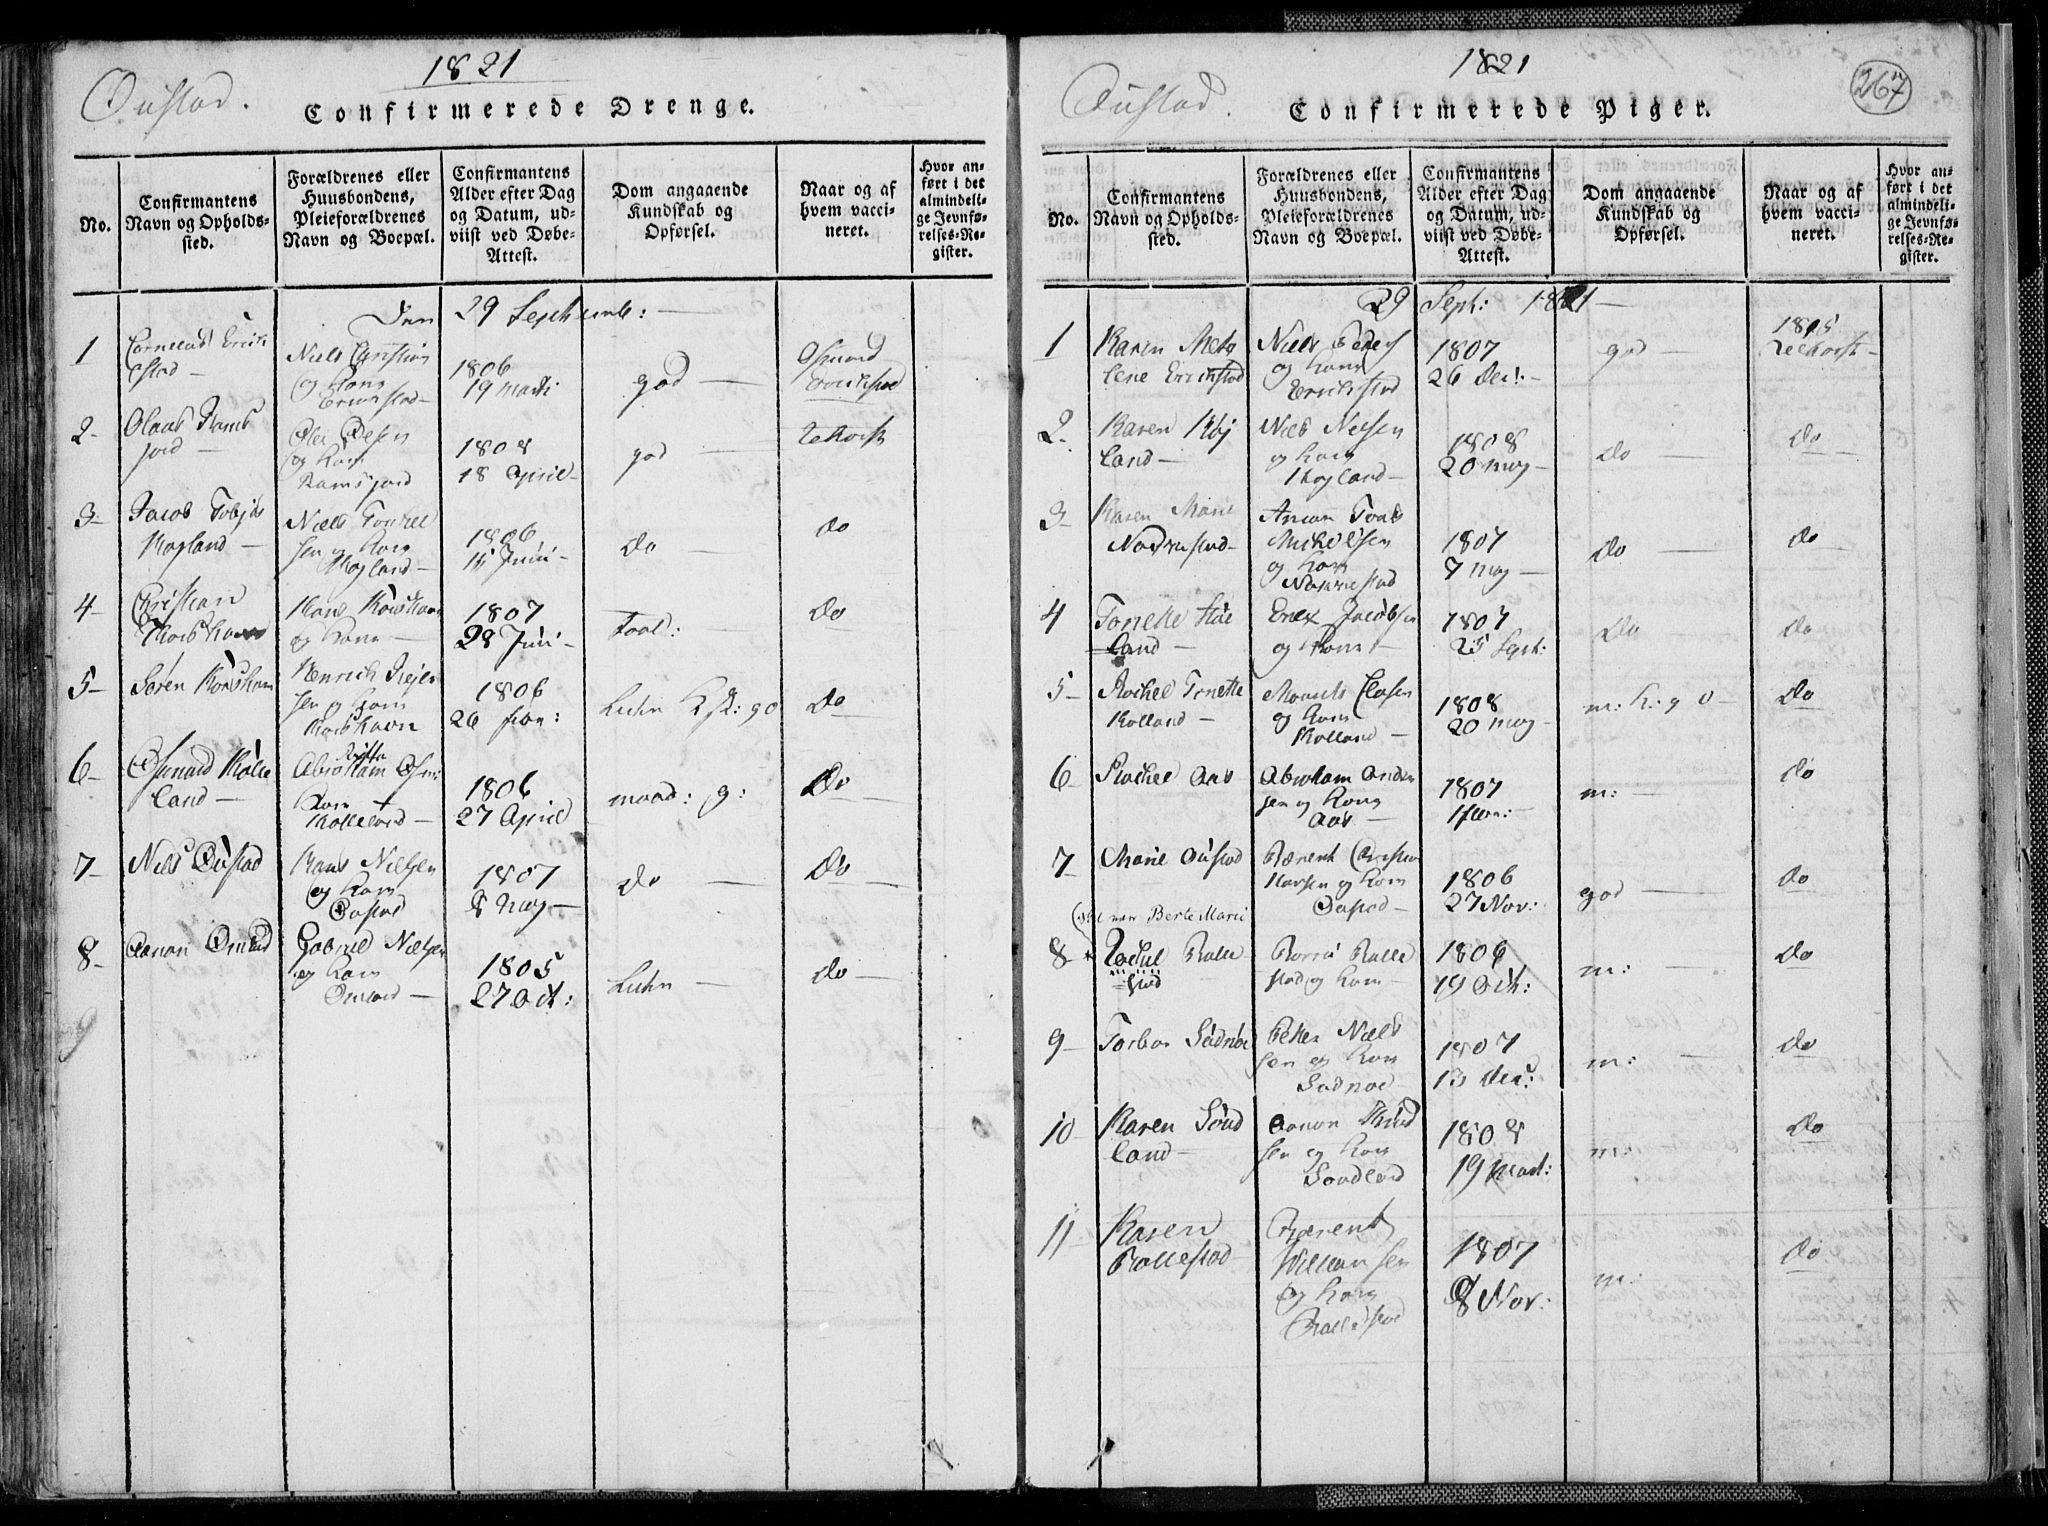 1821
Oustad.
Confirmerede Drenge.
No.
Confirmantens
Navn og Opholds-
sted.
Forældrenes eller
Huusbondens,
Pleieforældrenes
Navn og Boepæl.
Confirmantens
Alder efter Dag
og Datum, ud-
viist ved Døbe-
Attest.
Dom angaaende
Kundskab og
Opførsel.
Naar og af
hvem vacci-
neret.
Hvor an-
ført i det
almindeli-
ge Jevnfø-
relses-Re-
gister.
Den 29 Septemb:
1
Cornelius Erik
stad
Niels Christian
og Kone
Erikstad
1806
19 Marti
god
Osmund
Erikstad
2
Olaus Rams
jord
Ole Olsen
og Kone
Ramsjord
1808
18 April
god
3
Jacob Tobias
Høgland
Niels Tonnes
sen og Kone
Høgland
1806
Juni
do
do
4
Christian
Korshavn
Hans Korshavn
og Kone
1807
28 Juni
Taal:
do
5
Søren Korshavn
Henrich Rejer
sen og Kone
Korshavn
1806
26 Jan:
Liden
do
6
Osmund Kolle
land
Abraham Osm:
Kone
Kolleland
1806
27 April
maad: g:
do
7
Niels Oustad
Hans Nielsen
og Kone
Oustad
1807
8 May
do
do
8
Aanon Omland
Gabriel Nielsen
og Kone
Omland
1805
27 Oct:
Liden
do
9
1821
267
Oustad.
Confirmerede Piger.
No.
Confirmantens
Navn og Opholds-
sted.
Forældrenes eller
Huusbondens,
Pleieforældrenes
Navn og Boepæl.
Confirmantens
Alder efter Dag
og Datum, ud-
viist ved Døbe-
Attest.
Dom angaaende
Kundskab og
Opførsel.
Naar og af
hvem vacci-
neret.
Hvor an-
ført i det
almindeli-
ge Jevnfø-
relses-Re-
gister.
29 Sept: 1821
1
Karen Meta
lene Erikstad
Niels Peders
og Kone
Erikstad
1807
26 Dec:
god
1815
2
Karen Høj
land
Niels Nielsen
og Kone
Høgland
1808
20 May
do
do
3
Karen Marie
Nordrestad
Michelsen
og Kone
Nordrestad
1807
7 May
do
do
4
Tonette
land
Erik Jacobsen
og Kone
1807
25 Sept:
do
do
5
Rachel Tonette
Kolland
Mouns Clasen
og Kone
Kolland
1808
20 May
m: K: g O
do
6
Rachel Aas
Abraham Ander
sen og Kone
Aas
1807
1 Jan:
m:
do
7
Marie Oustad
Berent Christen
sen og Kone
Oustad
1806
27 Nov:
god
do
Berte Marie
8
Rachel Ralle
stad
Ralle
stad og Kone
1806
19 Oct:
m:
do
9
Torbor Sødnøe
Petter Niels
sen og Kone
Sødnøe
1807
13 Dec:
m:
do
10
Karen Sønd
land
Aanon
sen og Kone
Søndland
1808
19 Mart:
m:
do
11
Karen
Rallestad
Berent
Willumsen
og Kone
Rallestad
1807
8 Nov:
m:
do